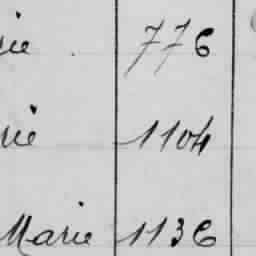 ie 776
rie 1104
Marie 1136